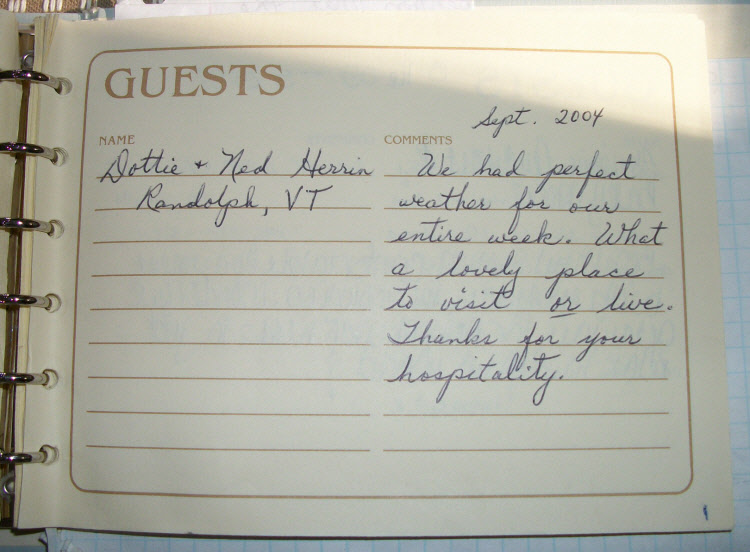 GUESTS
Sept. 2004
NAME
Dottie + Ned Herrin
Randolph, VT
COMMENTS
We had perfect
weather for our
entire week. What
a lovely place
to visit or live.
Thanks for your
hospitality.